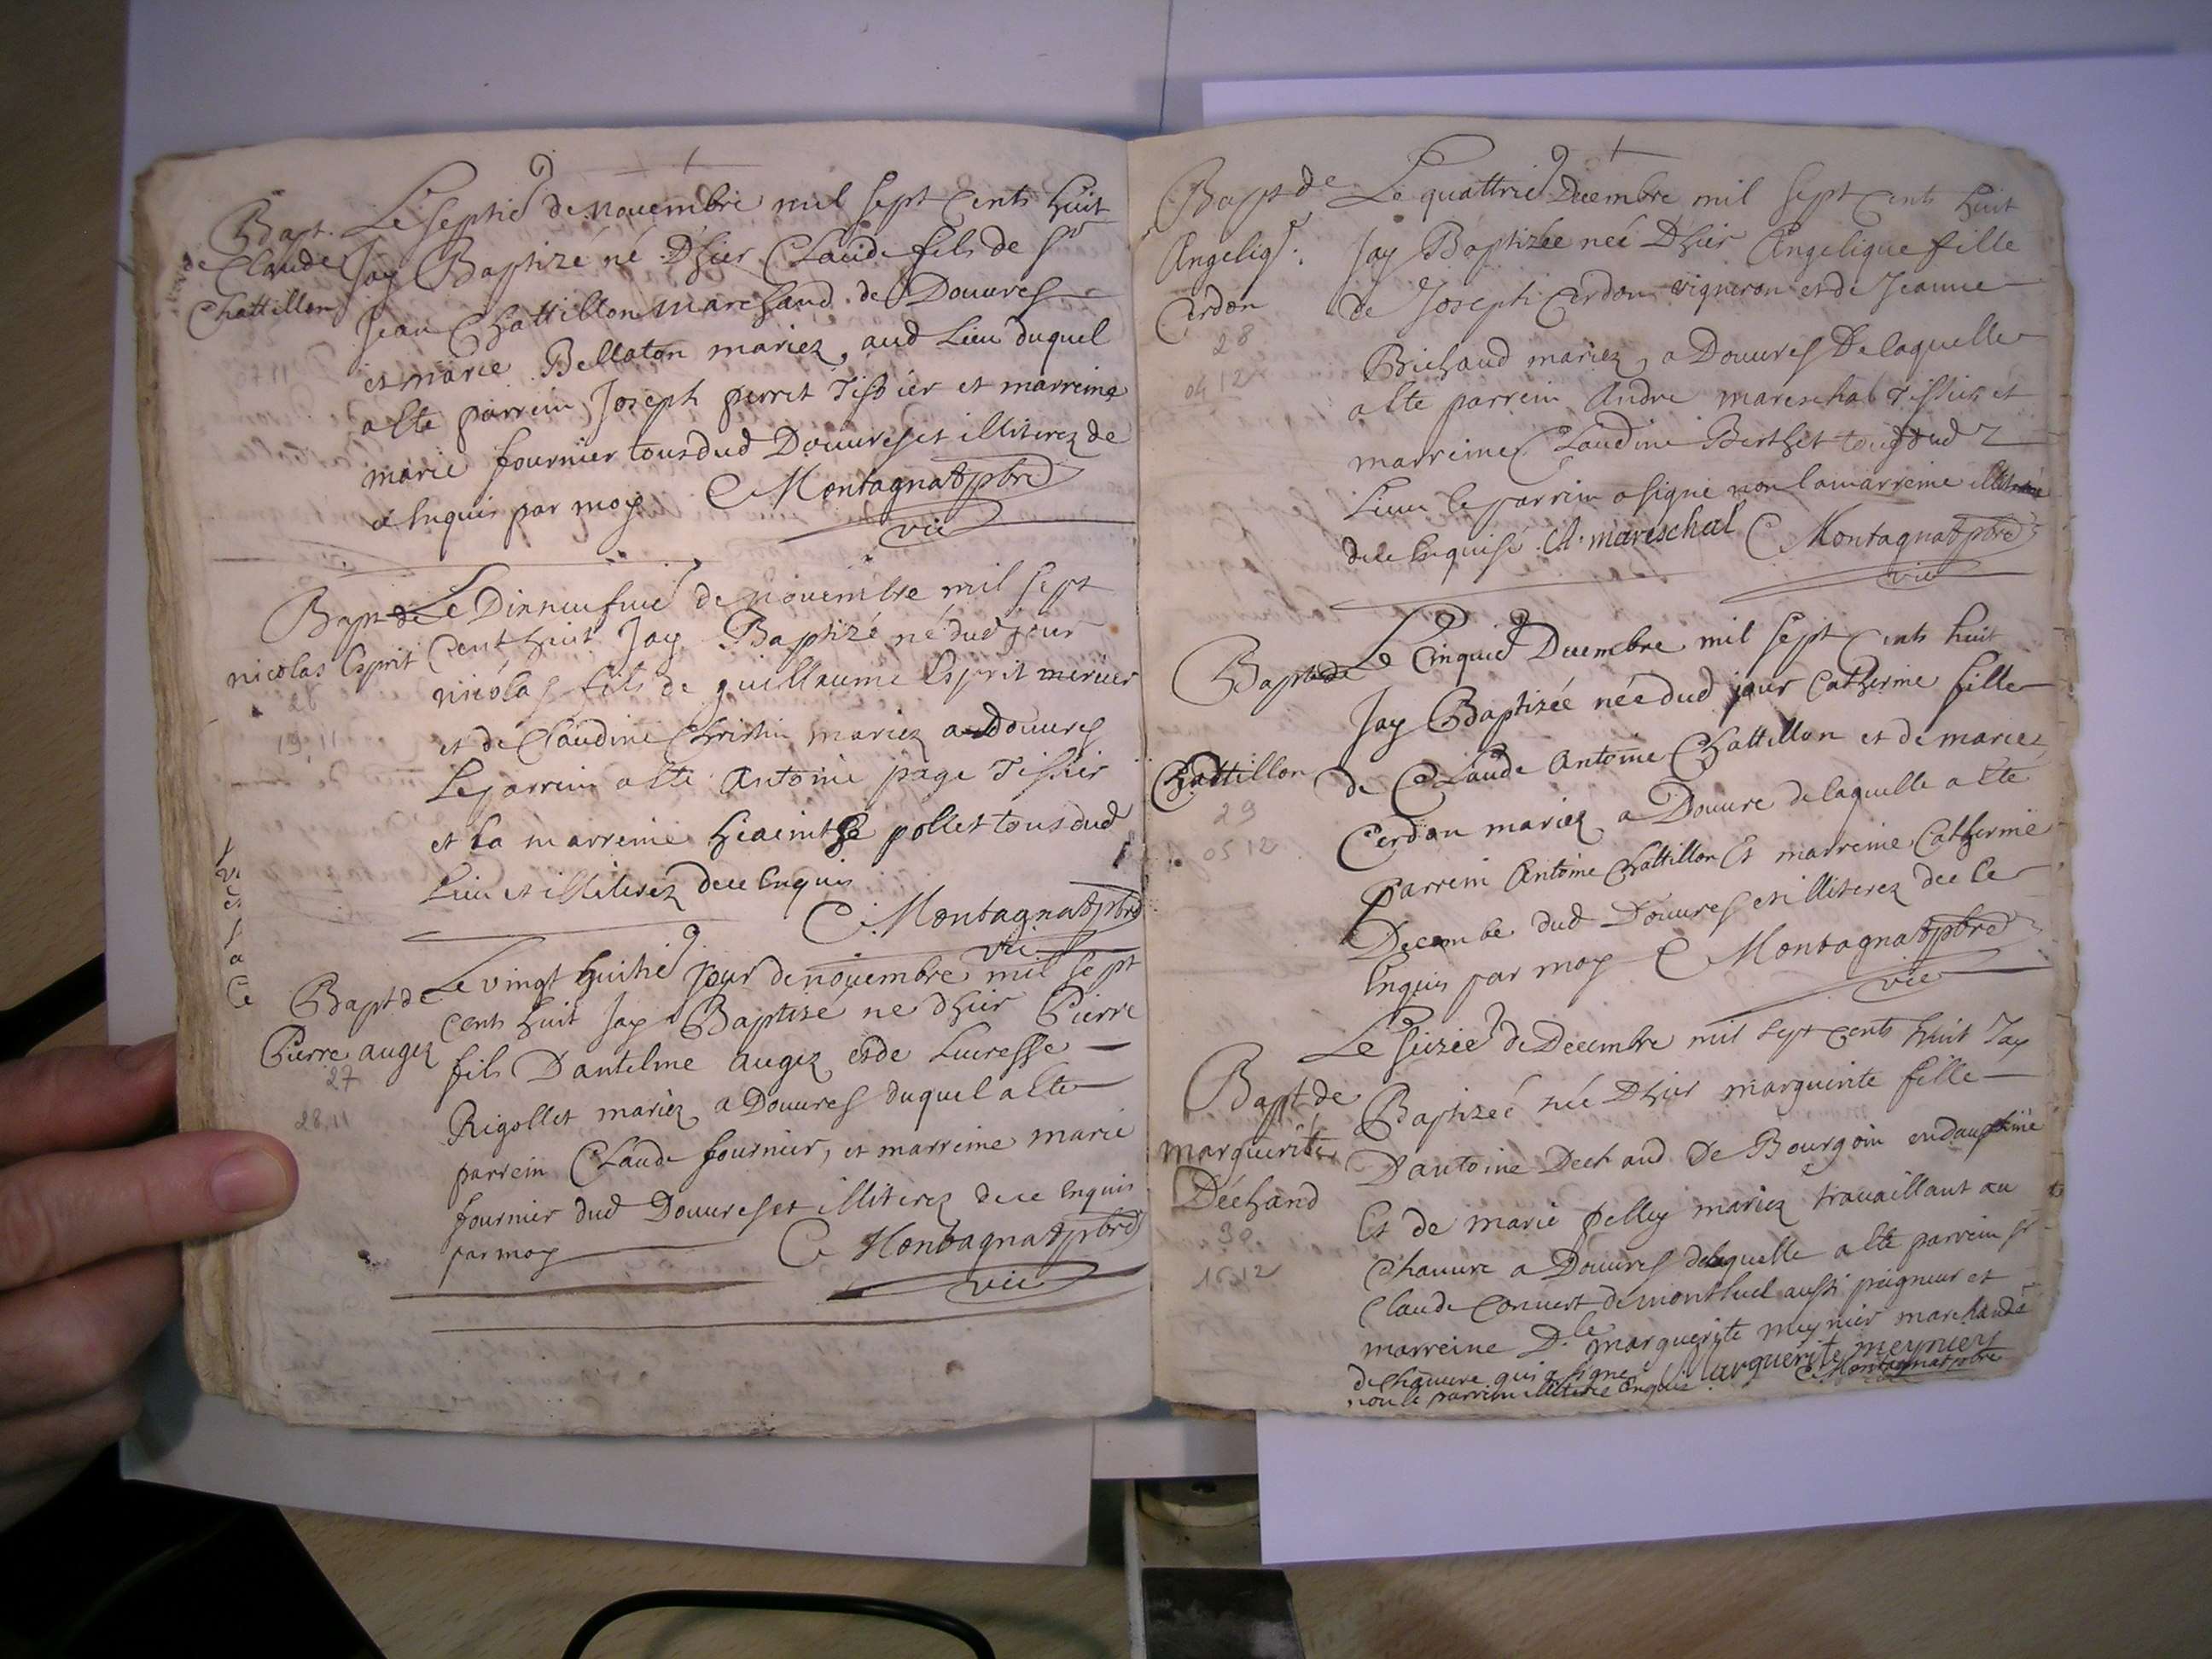 Bapt.
de Claude
Chattillon
Le septie de novembre mil sept cents huit
Jay Baptizé né Dhier Claude fils de Sr
Jean Chattillon marchand de Douvres
et marie Bellaton mariez, aud Lieu duquel
a esté parrein Joseph perret Tissier et marreine
marie fournier tous dud Douvres et illiterez de
ce Enquis par moy C Montagnat pbre
vic
Bapt de
nicolas Esprit
26
19 11
Le Dixneufvie de novembre mil sept
Cent huit Jay Baptizé né dud jour
nicolas fils de guillaume Esprit mercier
et de Claudine Christin mariez a Douvres
Le parrein a esté Antoine page Tissier
et La marreine hiacinthe pollet tous dud
Lieu et illiterez de ce Enquis
C. Montagnat pbre
vic
Bapt de
Pierre augez
27
28.11
Le vingt huitie jour de novembre mil sept
cents huit Jay Baptizé né dhier Pierre
fils Dantelme augez et de Lucresse
Rigollet mariez a Douvres duquel a esté
parrein Claude fournier, et marreine marie
fournier dud Douvres et illiterez de ce Enquis
par moy C Montagnat pbre
vic
Bapt de
Angeliq.
Cerdon
28
04 12
Le quattrie Decembre mil sept Cents huit
Jay Baptizée neé Dhier Angelique fille
de Joseph Cerdon vigneron et de Jeanne
Brichaud mariez a Douvres De laquelle
a esté parrein Andre mareschal Tissier et
marreine Claudine Berthet tous dud
Lieu le parrein a signé non la marreine
de ce Enquise A. mareschal C Montagnat pbre
vic
Bapt de
Chattillon
29
05 12
Le Cinquie Decembre mil sept Cents huit
Jay Baptizée née dud jour Catherine fille
de Claude Antoine Chattillon et de marie
Cerdon mariez a Douvre de laquelle a esté
Parrein Antoine Chattillon Et marreine Catherine
Decombe dud Douvres et illiterez de ce
Enquis par moy C Montagnat pbre
vic
Bapt de
marguerite
Déchand
30
16 12
Le seizie de Decembre mil sept cents huit Jay
Baptizeé née Dhier marguerite fille
D'antoine Dechand De Bourgoin en dauphiné
Et de marie pelley mariez travaillant au
Chanvre a Douvres de laquelle a esté parrein sr
Claude Convert de montluel aussi peigneur et
marreine Dle marguerite meynier marchande
de chanvre qui a signé Marguerite meynier
non le parrein illiteré Enquis. C Montagnat pbre